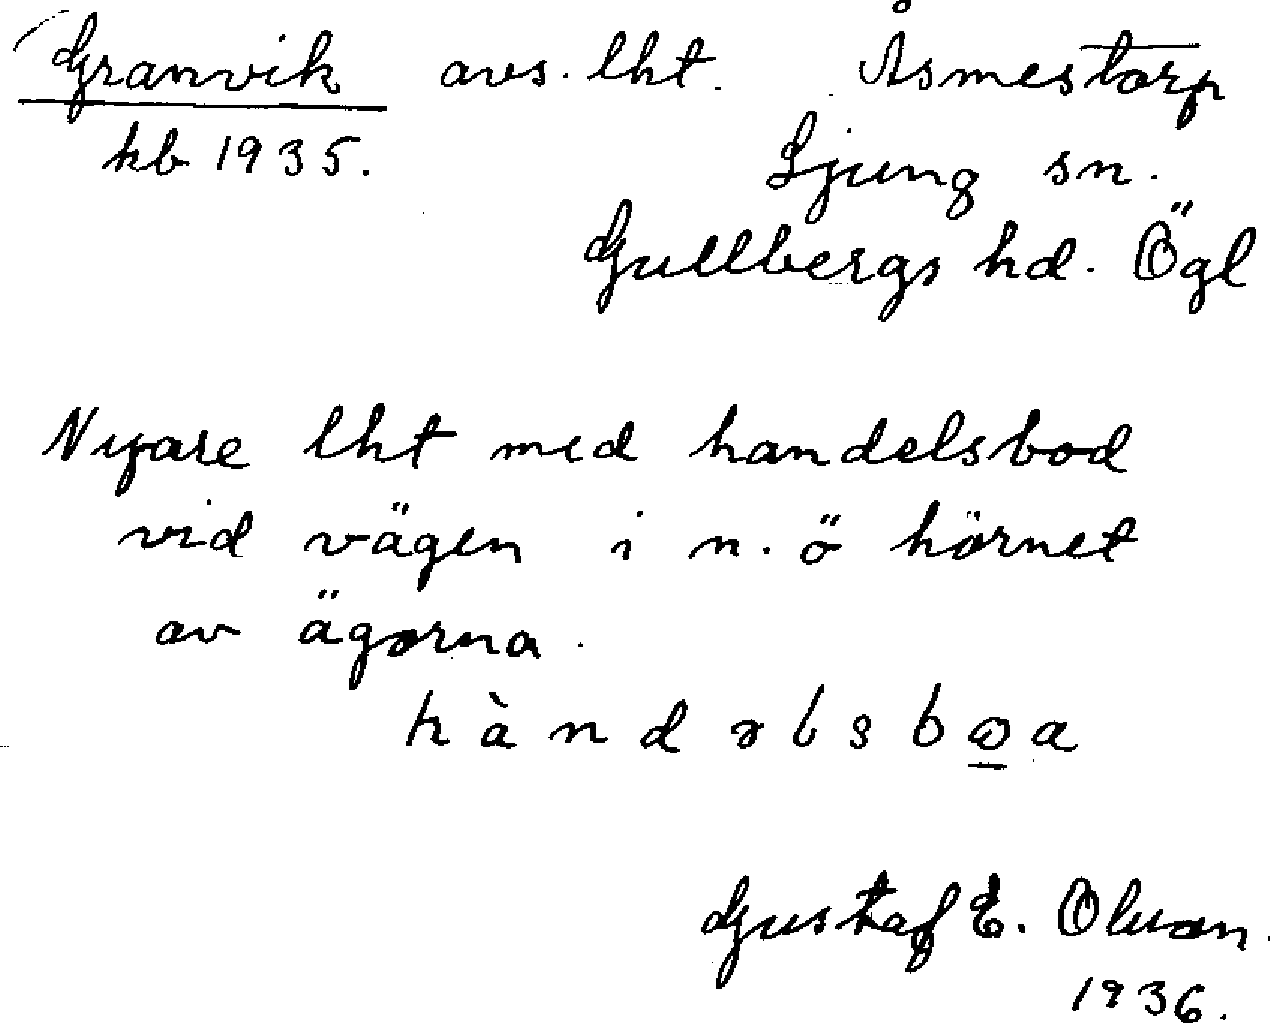 Granvik avs. lht. Åsmestorp
kb 1935. Ljung sn.
Gullbergs hd. Ögl
Nyare lht med handelsbod
vid vägen i n. ö hörnet
av ägorna.
h à n d ə l s b o̲ a
Gustaf E. Olsson.
1936.